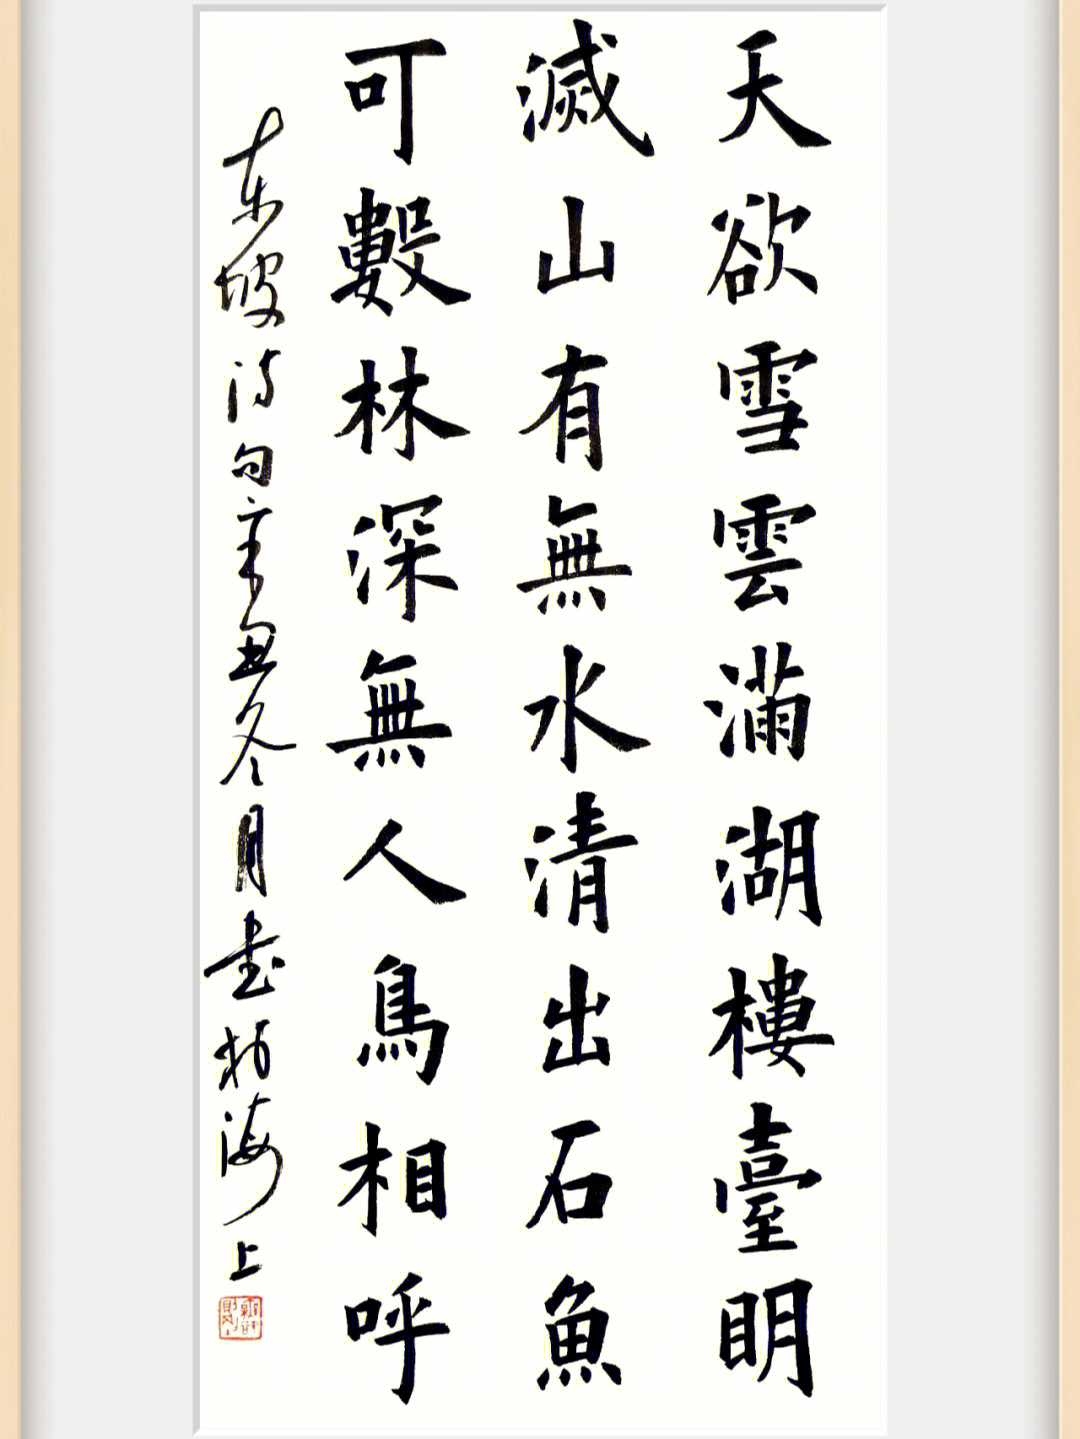 天欲雪雲滿湖樓臺明
滅山有無水清出石魚
可數林深無人鳥相呼
东坡诗句辛丑冬月书于海上